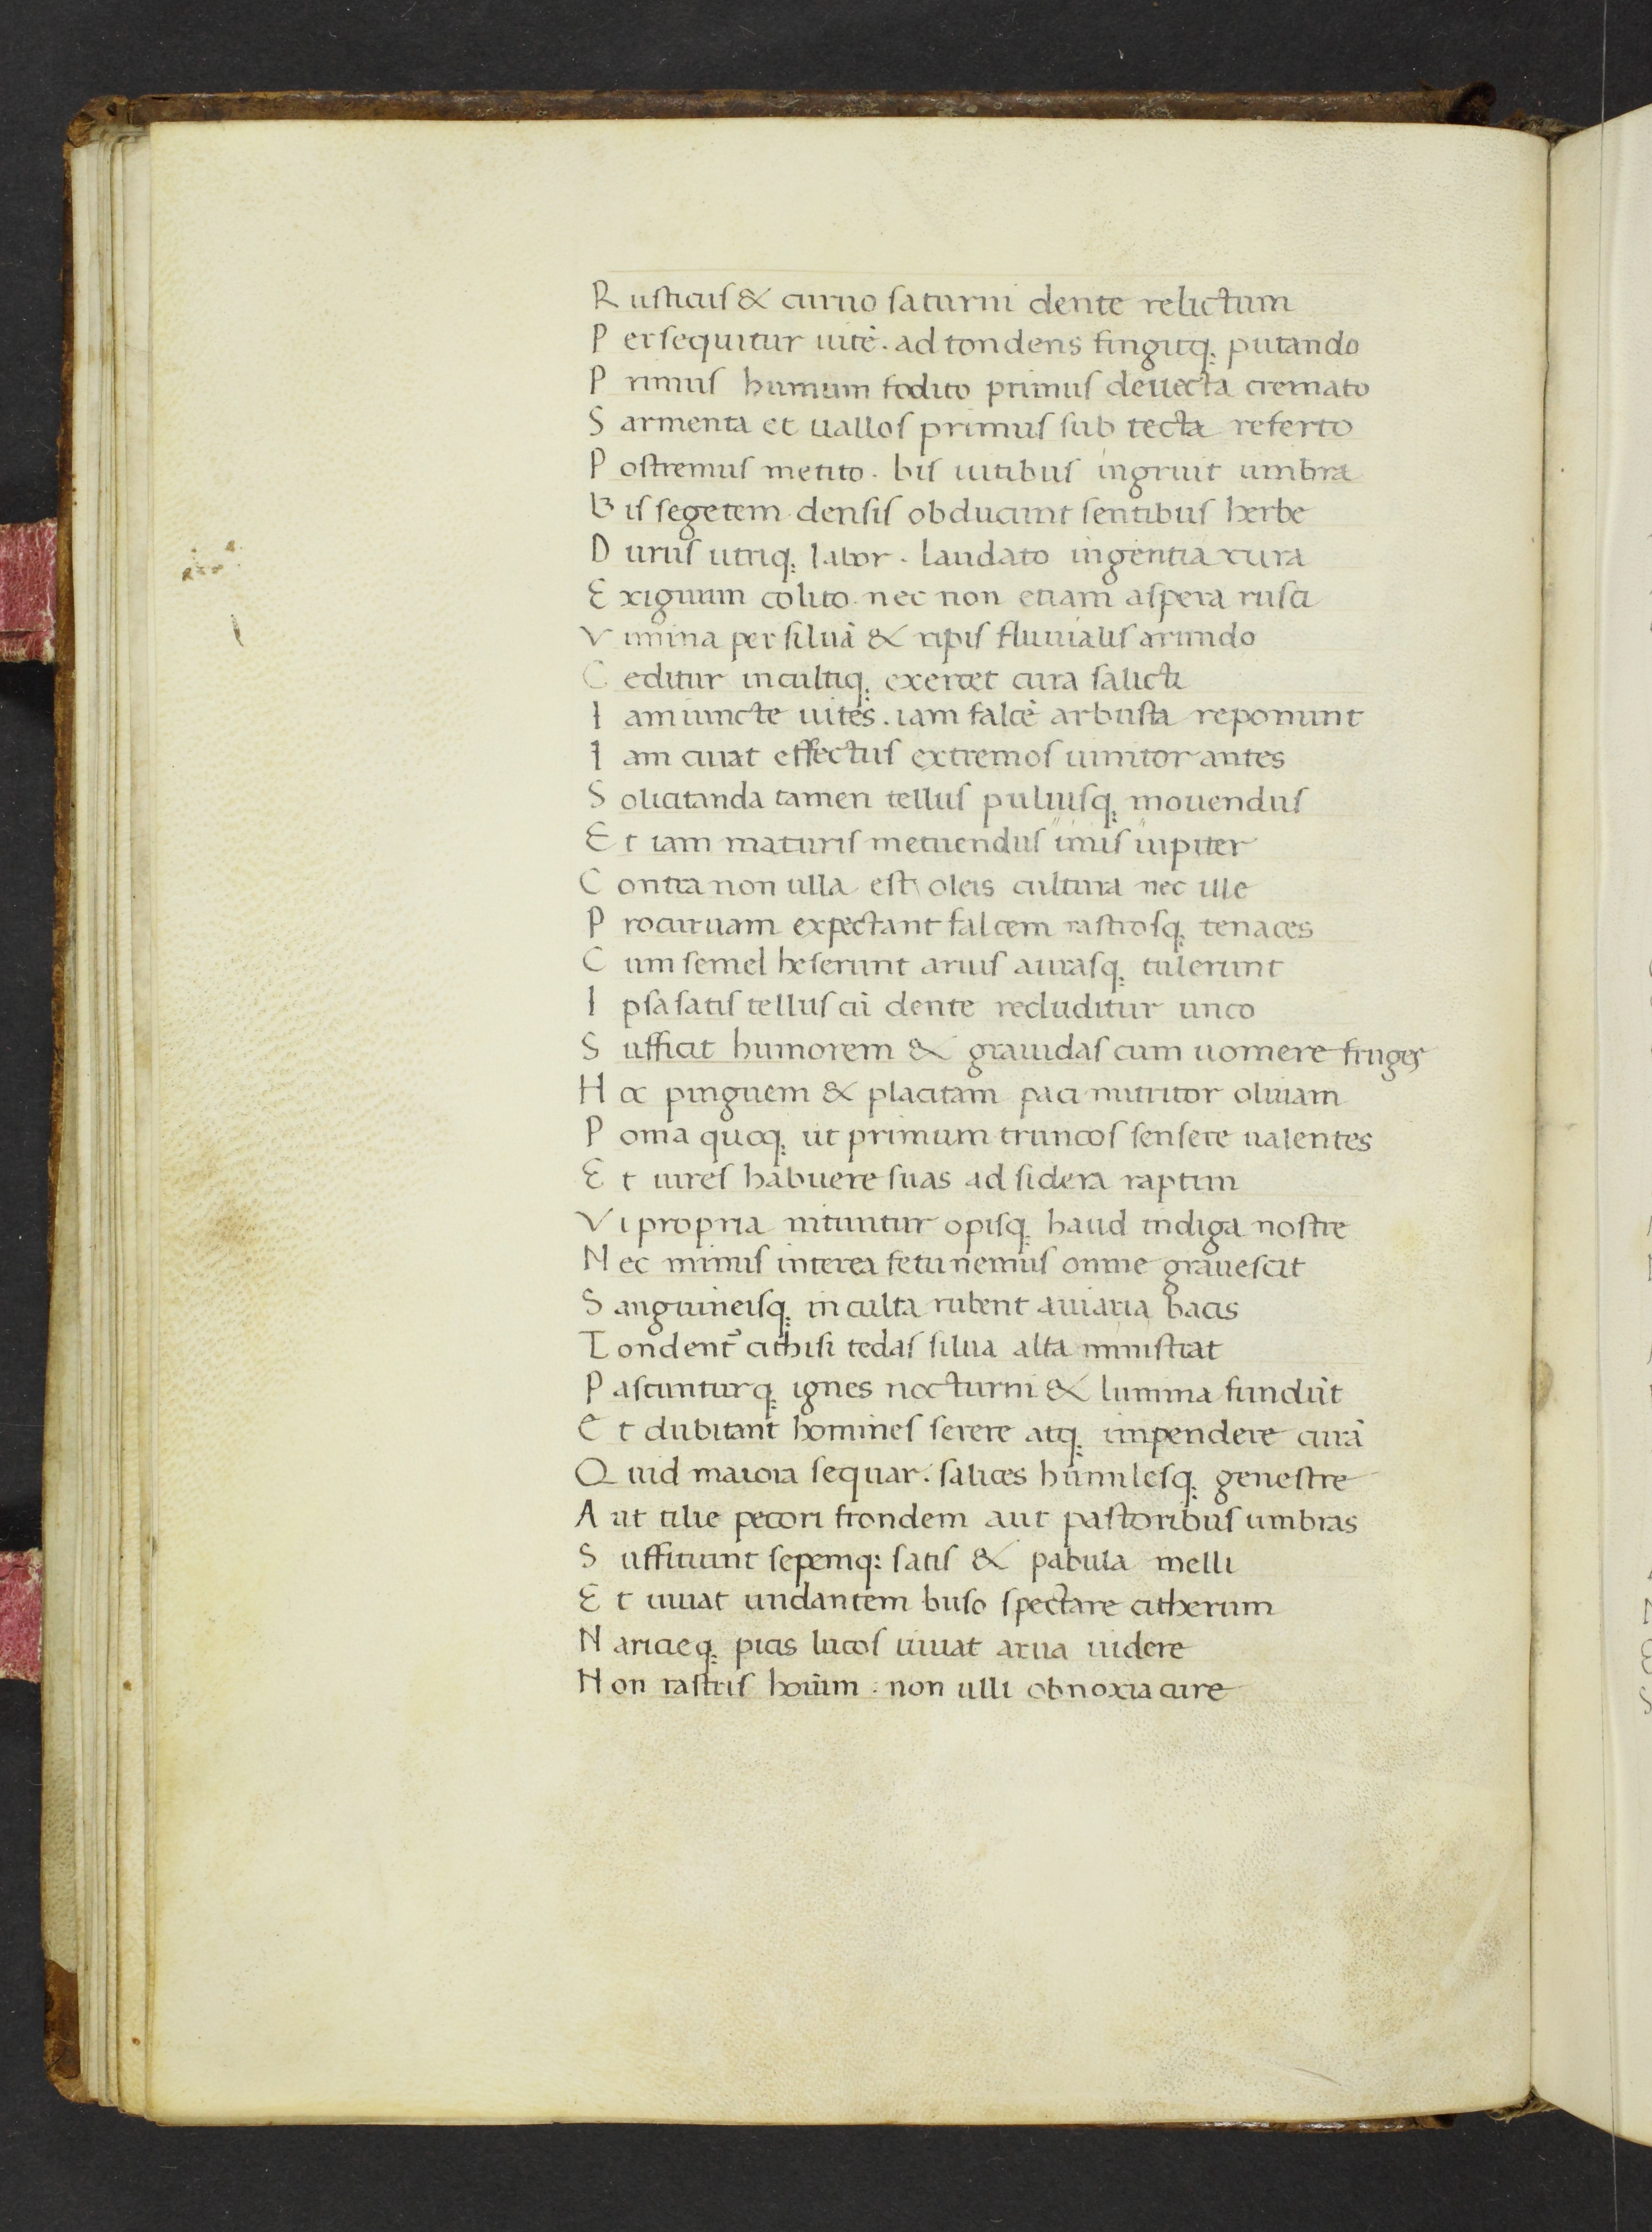 Rusticus & curuo saturni dente relictum
Persequitur uitē. ad tondens fingitq; putando
Primus humum fodito primus deuecta cremato
Sarmenta et uallos primus sub tecta referto
Postremus metito. bis uitibus ingruit umbra
Bis segetem densis obducunt sentibus herbe
Durus utriq; labor. laudato ingentia rura
Exiguum colito. nec non etiam aspera rusci
Vimina per siluā & ripis fluuialis arundo
Ceditur incultiq; exercet cura salicti
Iam iuncte uites. iam falcē arbusta reponunt
Iam cuiat effectus extremos uinitor antes
Solicitanda tamen tellus puluisq; mouendus
Et iam maturis metuendus "imis "iupiter
Contra non ulla est oleis cultura nec ille
Procuruam expectant falcem rastrosq; tenaces
Cum semel heserunt aruis aurasq; tulerunt
Ipsa satis tellus cū dente recluditur unco
Sufficit humorem & grauidas cum uomere fruges
Hoc pinguem & placitam paci nutritor oliuam
Poma quoq; ut primum truncos sensere ualentes
Et uires habuere suas ad sidera raptim
Vi propria nituntur opisq; haud indiga nostre
Nec minus interea fetu nemus omne grauescit
Sanguineisq; inculta rubent auiaria bacis
Tondent᷑ cithisi tedas silua alta ministrat
Pascunturq; ignes nocturni & lumina fundūt
Et dubitant homines serere atq; impendere curā
Quid maiora sequar. salices humilesq; genestre
Aut tilie pecori frondem aut pastoribus umbras
Suffitiunt sepemq; satis & pabula melli
Et iuuat undantem buso spectare citherum
Naricieq; picis lucos iuuat arua uidere
Non rastris hoīum. non ulli obnoxia cure